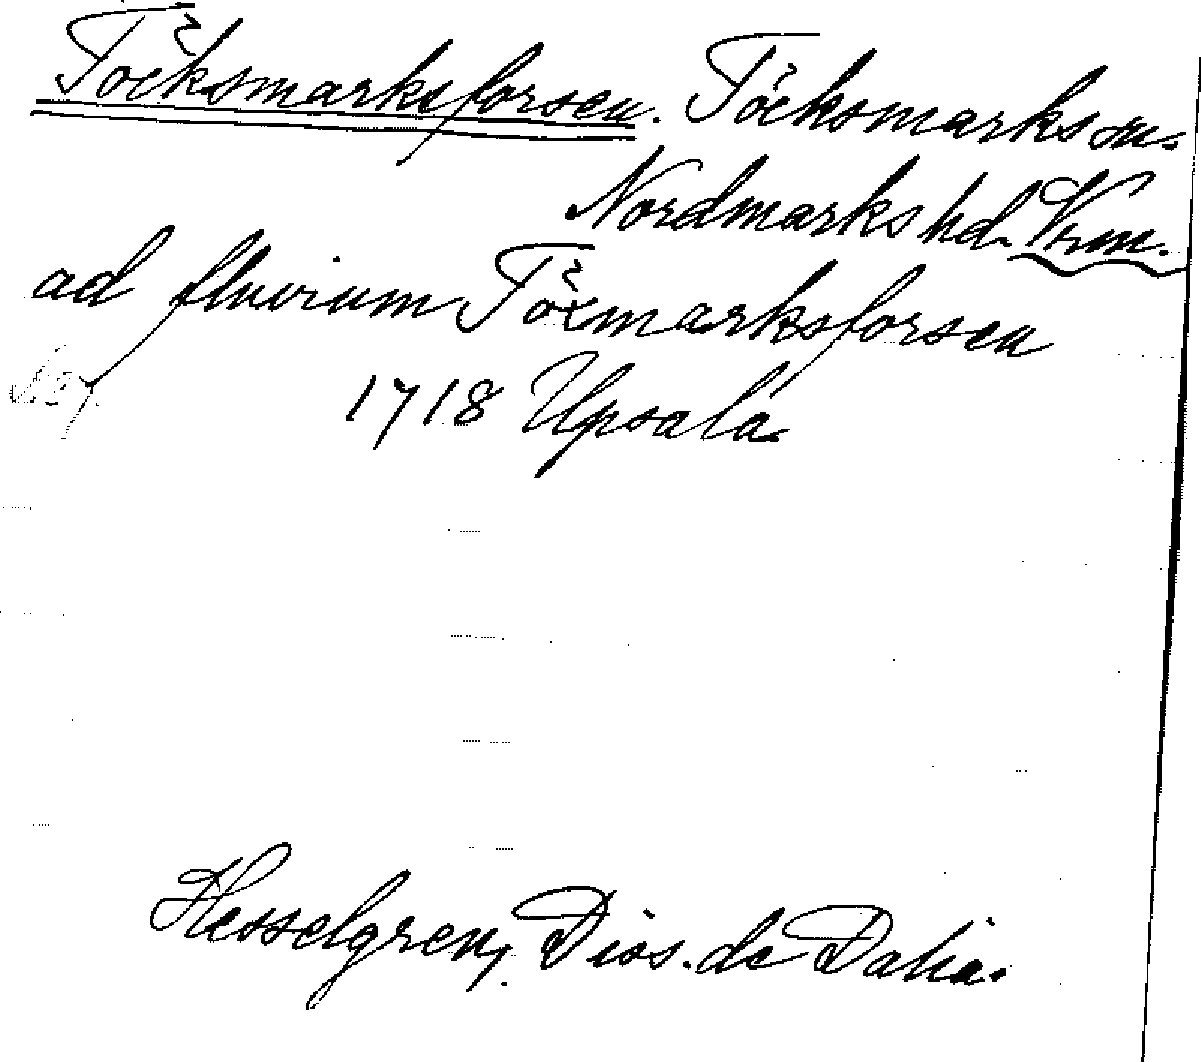 Töcksmarksforsen. Töcksmarks sn.
Nordmarks hd. Vrm.
ad fluvium Töxmarksforsen
1718 Upsala
Hesselgren, Diss. de Dalia.